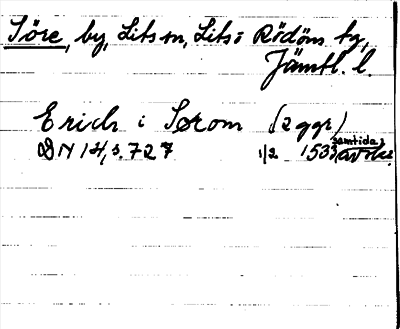 Söre, by, Lits sn, Lits o Rödöns tg,
Jämtl. l.
Erich i Sørom (2 ggr)
DN 14, s. 727 1/2 1533 samtida avskr.